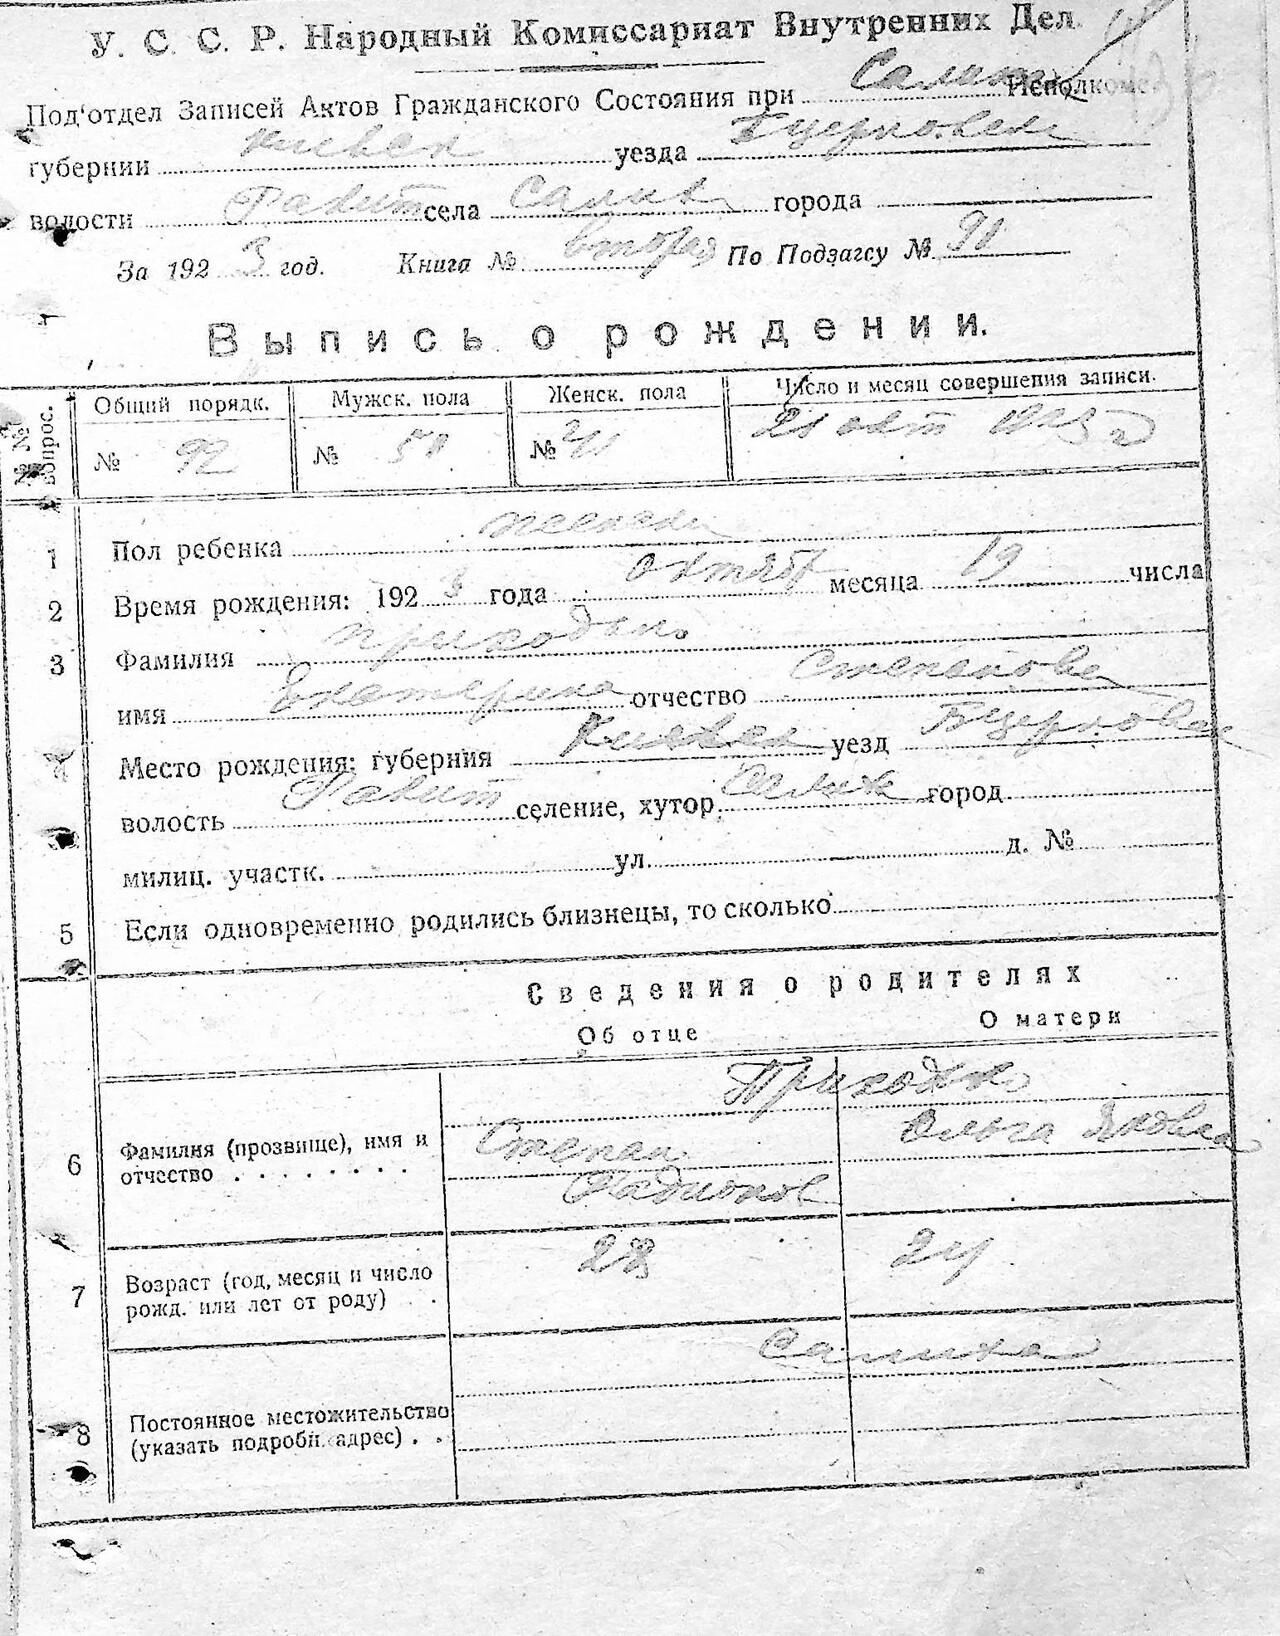 У. С. С. Р. Народный Комиссариат Внутренних Дел
Под'отдел Записей Актов Гражданского Состояния при Исполкоме
губернии Киевск уезда Бцерковск
волости Ракит села города
За 1923 год. Книга № вторая По Подзагсу № 91
Выпись о рождении.
№№ вопрос. Общий порядк. Мужск. пола Женск. пола Число и месяц совершения записи.
№ 92 № № 41 21 окт 1923 г
1 Пол ребенка женск
2 Время рождения: 1923 года октяб месяца 19 числа
3 Фамилия Приходько
имя Екатерина отчество Степанова
Место рождения: губерния Киевск уезд Бцерковск
волость Ракит селение, хутор город
милиц. участк. ул. д. №
5 Если одновременно родились близнецы, то сколько
Сведения о родителях
Об отце О матери
Приходько
6 Фамилия (прозвище), имя и отчество . . . . . . . Степан Ольга Яковл
Родионов
7 Возраст (год, месяц и число рожд. или лет от роду) . . 28 24
8 Постоянное местожительство (указать подробн. адрес) . .